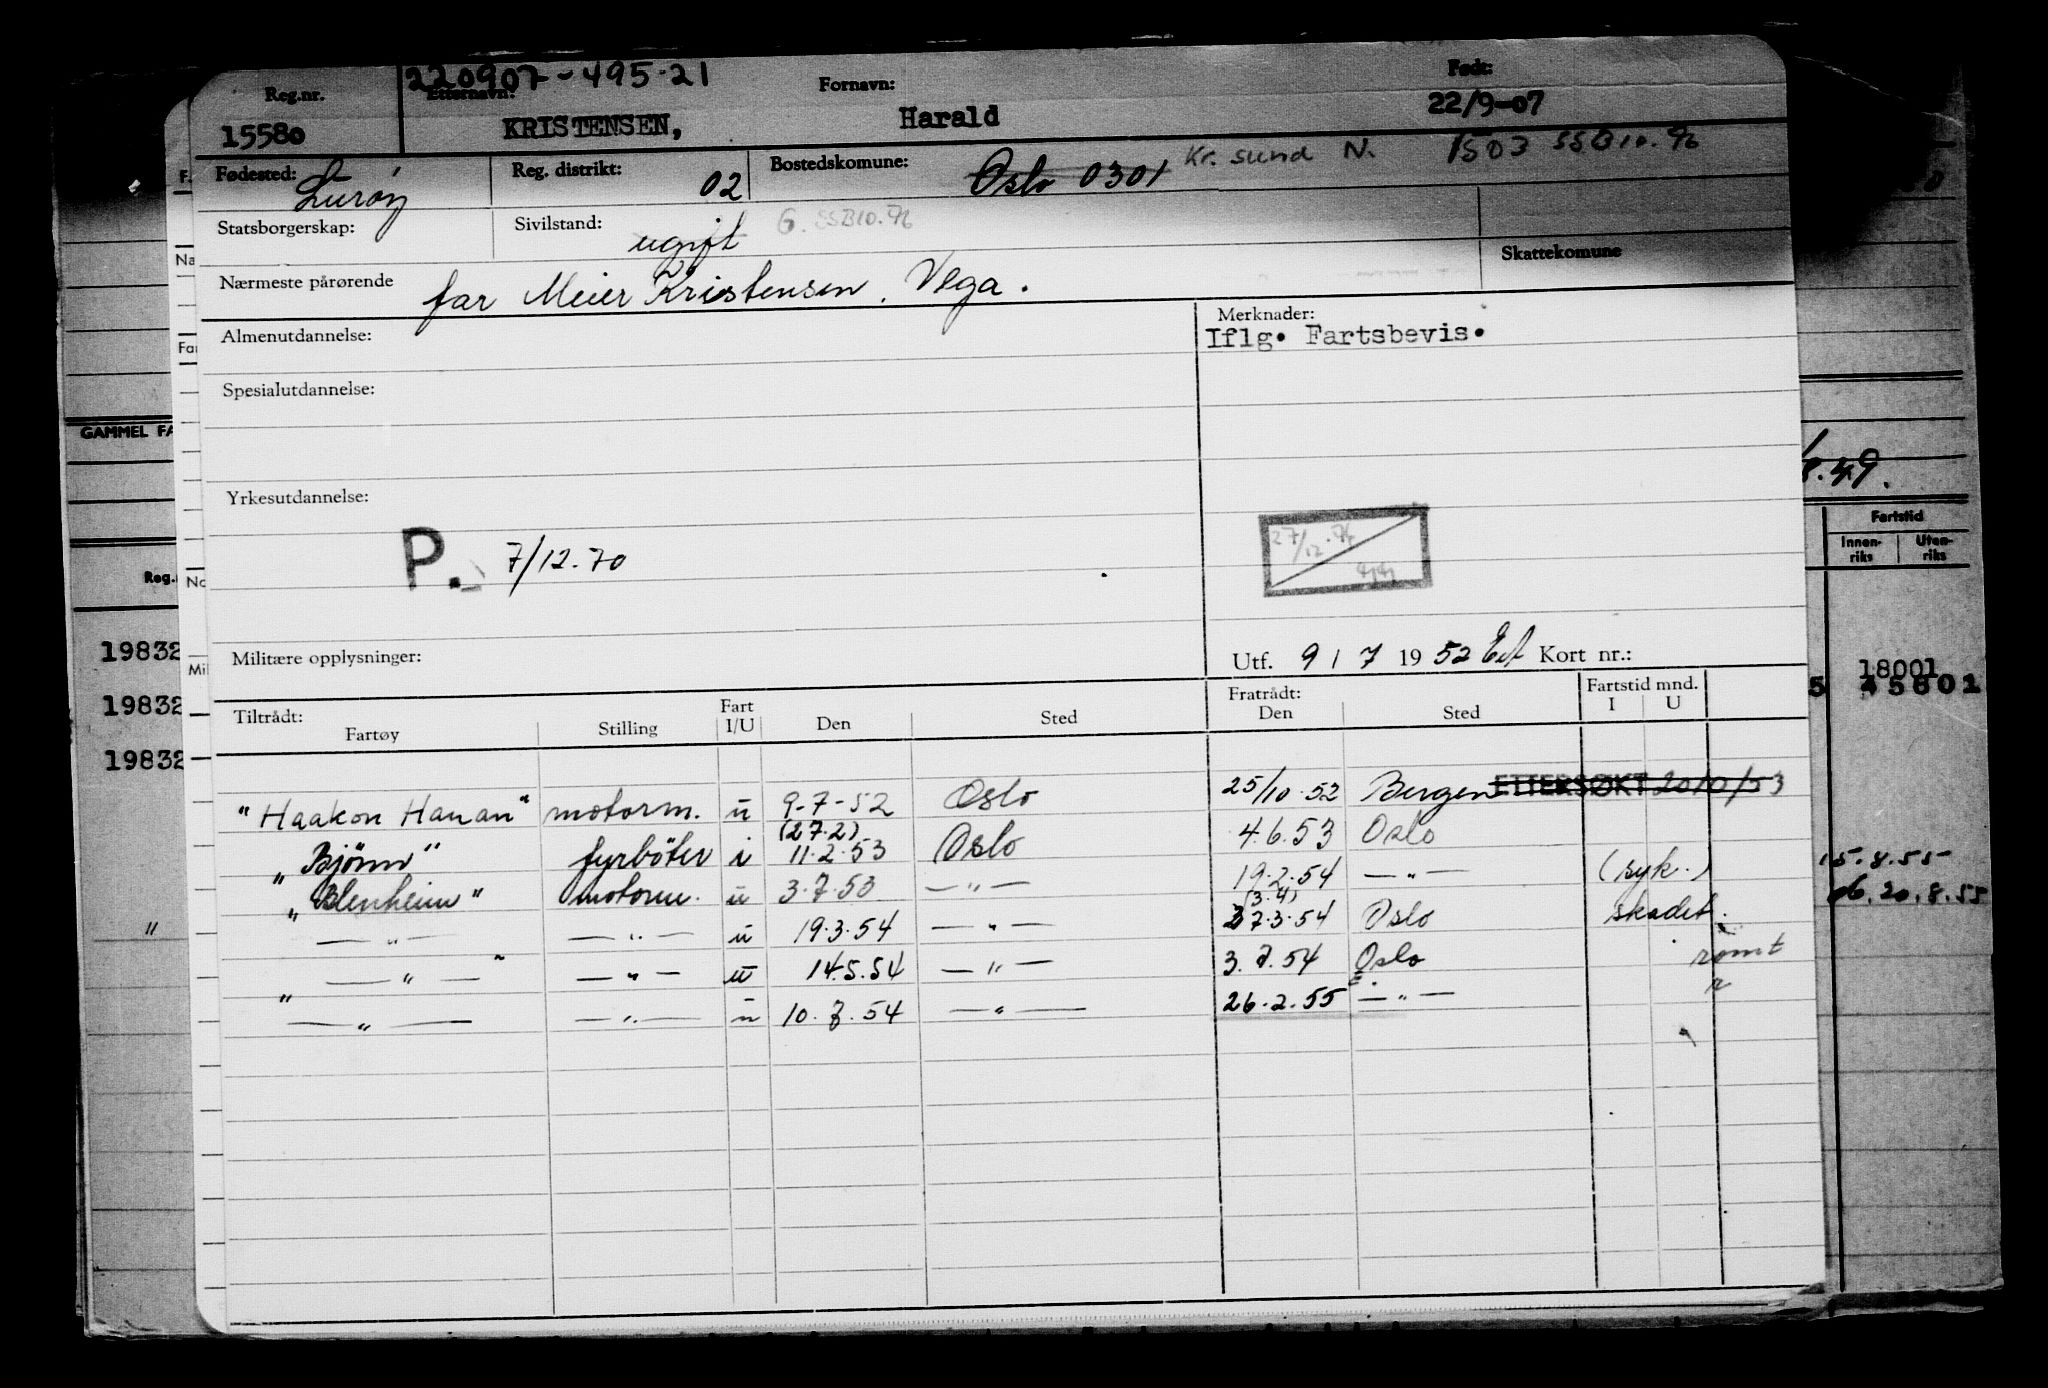 220907-495.21
Reg.nr. Etternavn: Fornavn: Født:
15580 KRISTENSEN, Harald 22/9-07
Fødested: Lurøy Reg. distrikt: 02 Bostedskomune: Oslo 0301 Kr. sund N. 1503 SSB10.
Statsborgerskap: Sivilstand: ugift G. SSB10.
Skattekomune
Nærmeste pårørende far Meier Kristensen, Vega.
Almenutdannelse: Merknader:
Iflg. Fartsbevis.
Spesialutdannelse:
Yrkesutdannelse:
P. 7/12.70 27/12.
Militære opplysninger: Utf. 9 / 7 1952 Kort nr.:
Tiltrådt: Fratrådt: Fartstid mnd.
Fartøy Stilling Fart I/U Den Sted Den Sted I U
"Haakon Hauan" motorm. u 9-7-52 Oslo 25/10.52 Bergen ETTERSØKT 20/0/53
(27.2)
"Bjönn" fyrböter i 11.2.53 Oslo 4.6.53 Oslo
"Blenheim" motorm. u 3.7.53 — " — 19.2.54 — " — (syk.)
(3.4)
— " — — " — u 19.3.54 — " — 27.3.54 Oslo skadet.
" — " — " — " — u 14.5.54 — " — 3.7.54 Oslo römt
— " — — " — u 10.8.54 — " — 26.2.55 — " — "
GAMMEL FA
Reg.
19832
19832
19832
"
F.
Na
Far
No
Mil
8.49.
Fartstid
Innen-riks Uten-riks
18001
5 45801
15.8.55
20.8.55